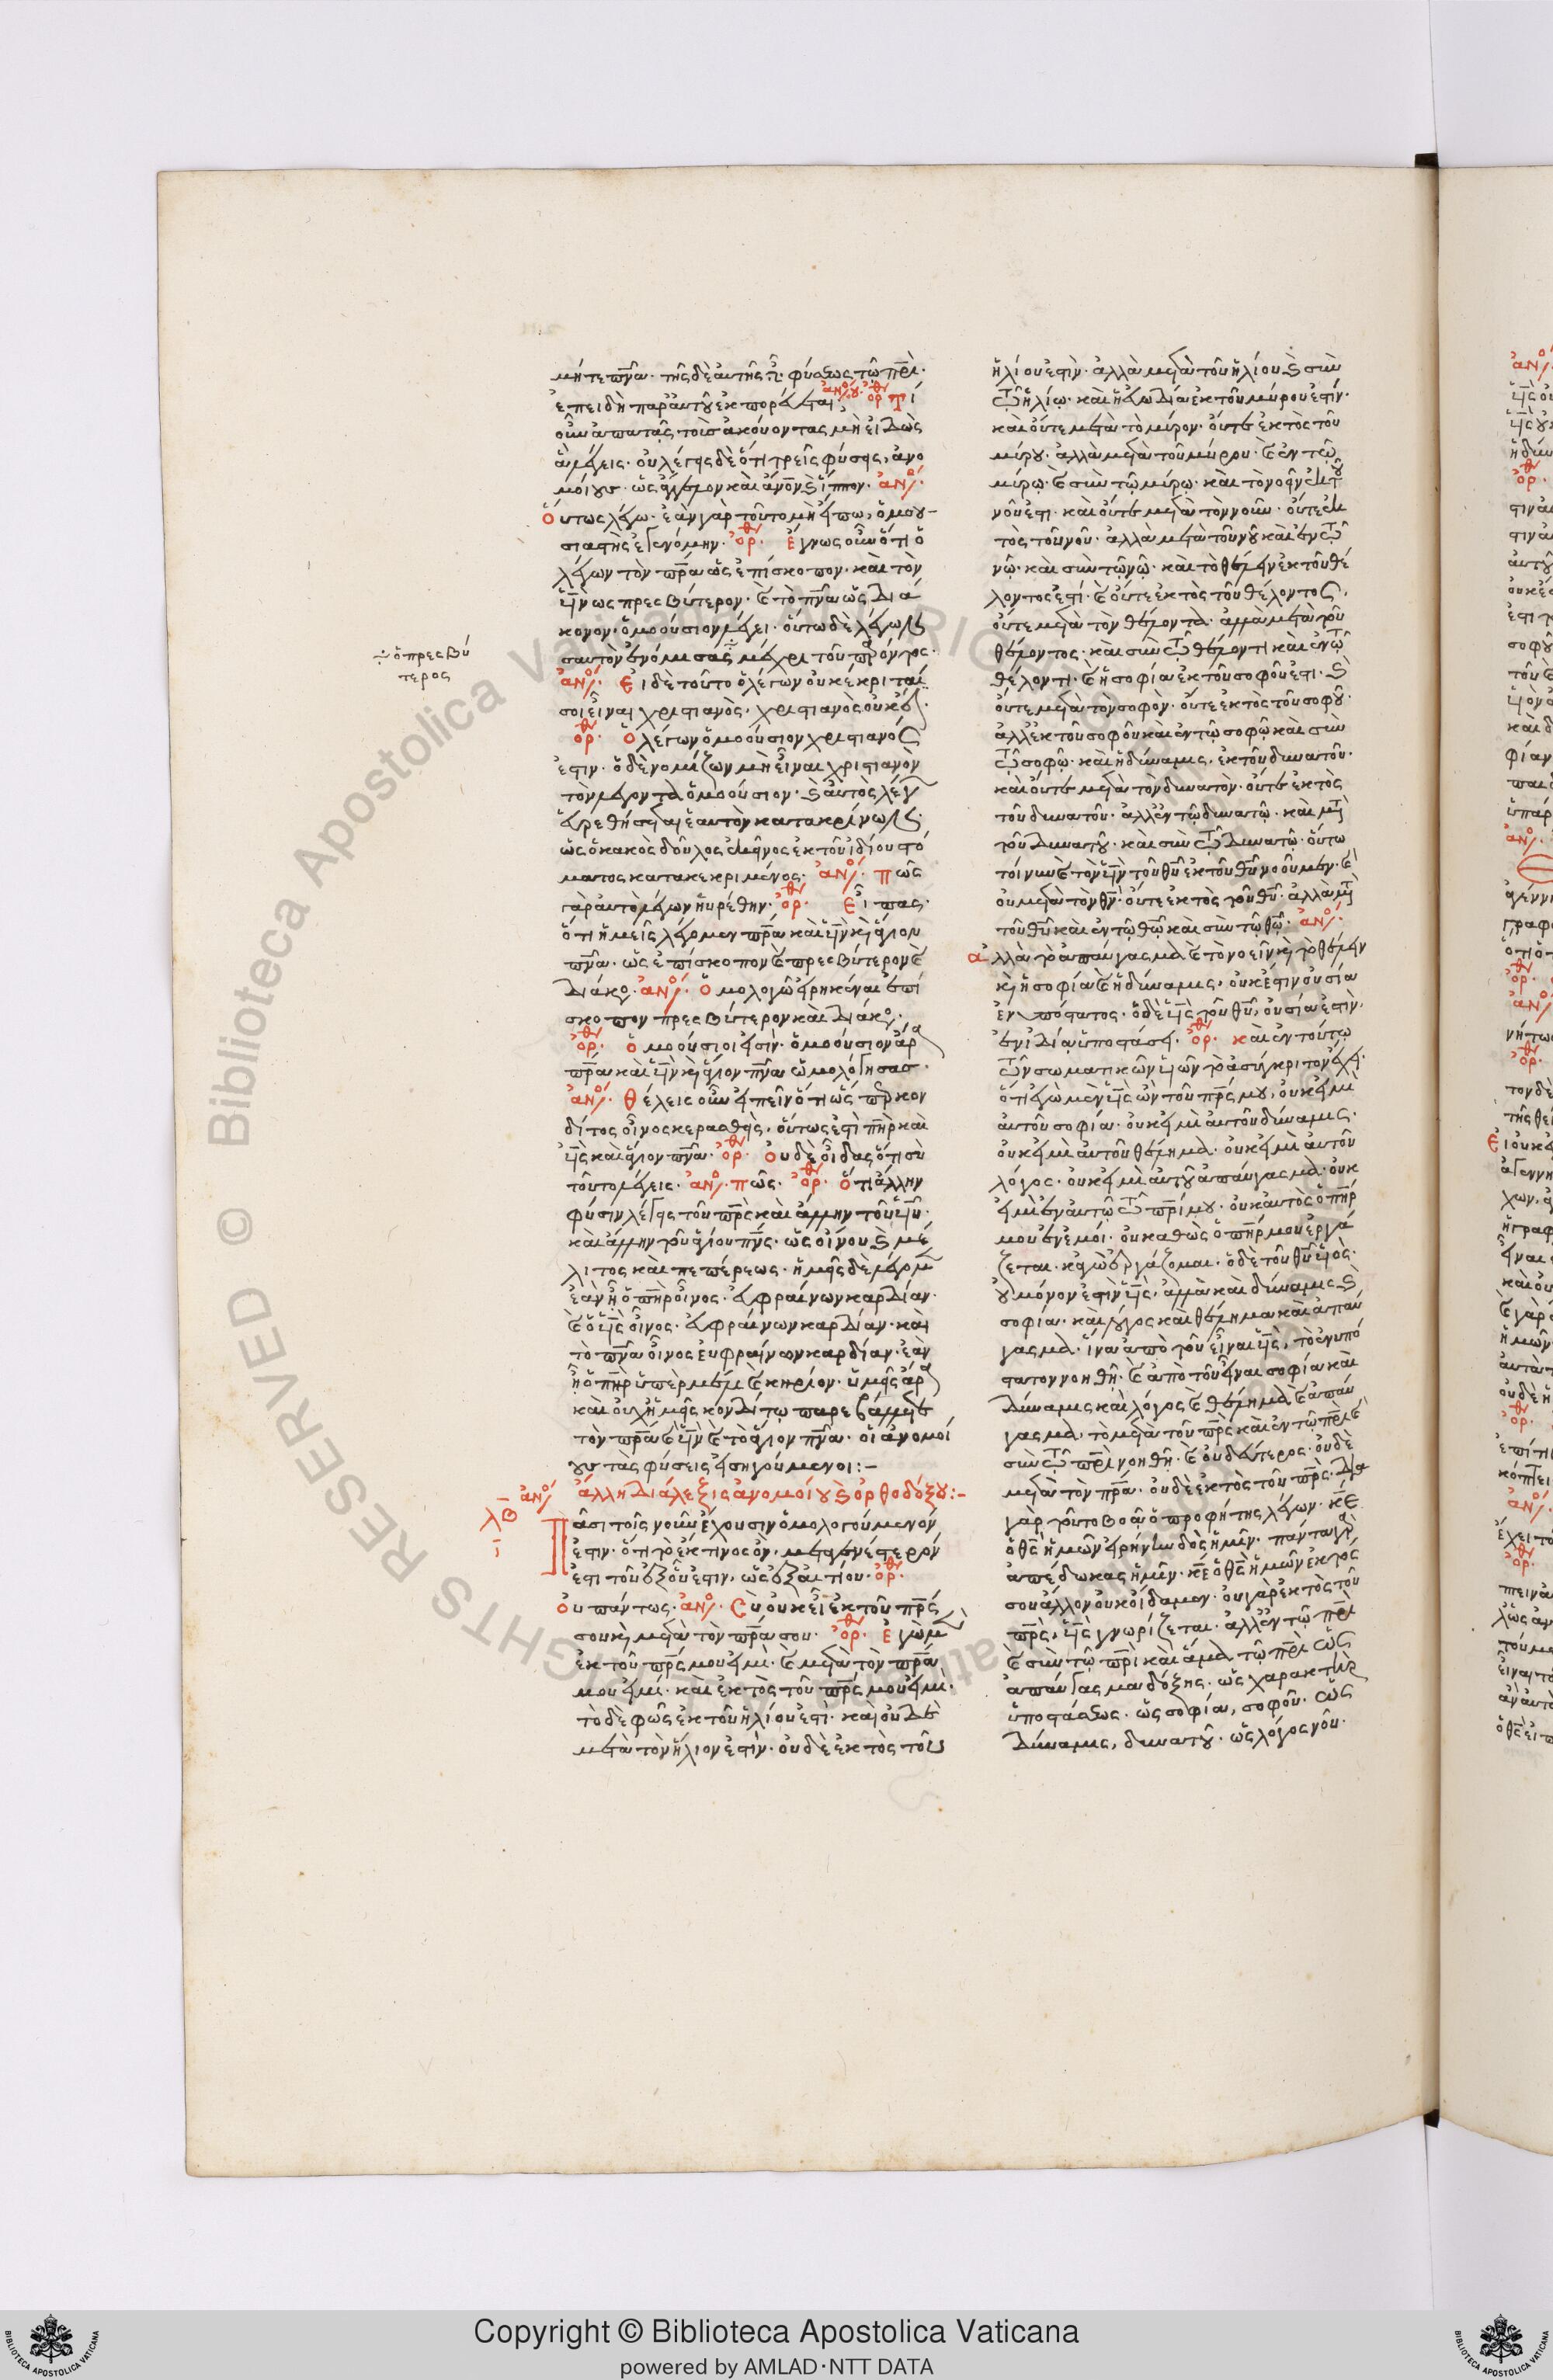 μήτε πν̅α. τῆς δὲ αὐτῆς ἐστὶ φύσεως τῷ π̅ρι.
ἐπειδὴ παρ' αὐτοῦ ἐκπορεύεται. ἀνο. ου. ὀρθ Τί
οὖν ἀπατᾷς τοὺς ἀκούοντας μὴ εἰδὼς
ἃ λέγεις. οὐ λέγεις δὲ ὅτι τρεῖς φύσεις, ἀνο
μοίους. ὡς ἄγγελον καὶ ἄν̅ον καὶ ἵππον. ἀνο.
Οὕτως λέγω. ἐὰν γὰρ τοῦτο μὴ εἴπω, ὁμοου-
σιαστὴς ἐγενόμην. ὀρθ. Ἔγνως οὖν ὅτι ὁ
λέγων τὸν π̅ρα ὡς ἐπίσκοπον. καὶ τὸν
υ̅ν ὡς πρεσβύτερον. καὶ τὸ πν̅α ὡς διά
κονον. ὁμοούσιον λέγει. οὕτω δὲ λέγων
σαυτὸν ἐνόμισας μέχρι τοῦ παρόντος.
ἀνο. Εἰ δὲ τοῦτο ὁ λέγων οὐ κέκριταί
σοι εἶναι χριστιανὸς, χριστιανὸς οὐκ εἶ.
ὀρθ. Ὁ λέγων ὁμοούσιον χριστιανός
ἐστιν. ὁ δὲ νομίζων μὴ εἶναι χριστιανὸν
τὸν λέγοντα ὁμοούσιον. καὶ αὐτὸς λέγων
εὑρεθήσεται ἑαυτὸν κατακρίνων.
ὡς ὁ κακὸς δοῦλος ἐκεῖνος ἐκ τοῦ ἰδίου στό
ματος κατακεκριμένος. ἀνο. Πῶς
γὰρ αὐτὸ λέγων ηὑρέθην. ὀρθ. Εἶπας.
ὅτι ἡμεῖς λέγομεν π̅ρα καὶ υ̅ν καὶ ἅγιον
πν̅α. ὡς ἐπίσκοπον καὶ πρεσβύτερον καὶ
διάκο. ἀνο. Ὁμολογῶ εἰρηκέναι ἐπί
σκοπον πρεσβύτερον καὶ διάκο.
ὀρθ. Ὁμοούσιοί εἰσιν. ὁμοούσιον ἄρα
π̅ρα καὶ υ̅ν καὶ ἅγιον πν̅α ὡμολόγησας.
ἀνο. Θέλεις οὖν εἰπεῖν ὅτι ὡς πρ κον
δῖτος οἶνος κερασθεὶς, οὕτως ἐστὶ π̅ηρ καὶ
υ̅ς καὶ ἅγιον πν̅α. ὀρθ. Οὐδὲ οἶδας ὅτι σὺ
τοῦτο λέγεις. ἀνο. πῶς. ὀρθ. Ὅτι ἄλλην
φύσιν λέγεις τοῦ π̅ρς καὶ ἄλλην τοῦ υ̅υ.
καὶ ἄλλην τοῦ ἁγίου πν̅ς. ὡς οἴνου καὶ μέ
λιτος καὶ πεπέρεως. ἡμεῖς δὲ λέγομεν
ἐὰν ᾖ ὁ π̅ηρ οἶνος. εὐφραίνων καρδίαν.
καὶ ὁ υ̅ς οἶνος. εὐφραίνων καρδίαν. καὶ
τὸ πν̅α οἶνος εὐφραίνων καρδίαν. ἐὰν
ᾖ ὁ π̅ηρ ὑπὲρ μέλι καὶ κηρίον. ὑμεῖς ἄρα
καὶ οὐχ ἡμεῖς κονδίτῳ παρεβάλλετε
τὸν π̅ρα καὶ υ̅ν καὶ τὸ ἅγιον πν̅α. οἱ ἀνομοί
ους τὰς φύσεις εἰσηγούμενοι:-
ἄλλη διάλεξις ἀνομοίου καὶ ὀρθοδόξου:-
λθ ἀνο Πᾶσι τοῖς νοῦν ἔχουσιν ὁμολογούμενόν
ἐστιν. ὅτι τὸ ἔκ τινος ὂν, μεταγενέστερόν
ἐστι τοῦ ἐξ οὗ ἐστιν, ὡς ἐξ αἰτίου. ὀρθ.
Οὐ πάντως. ἀνο. Σὺ οὐκ εἶ ἐκ τοῦ π̅ρς
σου καὶ μετὰ τὸν π̅ρα σου. ὀρθ. Ἐγὼ μὲν
ἐκ τοῦ π̅ρς μου εἰμὶ. καὶ μετὰ τὸν π̅ρα
μου εἰμι. καὶ ἐκτὸς τοῦ π̅ρς μου εἰμὶ.
τὸ δὲ φῶς ἐκ τοῦ ἡλίου ἐστι. καὶ οὐδὲ
μετὰ τὸν ἥλιον ἐστὶν. οὐδὲ ἐκτὸς τοῦ
ὁ πρεσβύ
τερος
ἡλίου ἐστὶν. ἀλλὰ μετὰ τοῦ ἡλίου καὶ σὺν
τῷ ἡλίῳ. καὶ ἡ εὐωδία ἐκ τοῦ μύρου ἐστίν.
καὶ οὔτε μετὰ τὸ μύρον. οὔτε ἐκτὸς τοῦ
μύρου. ἀλλὰ μετὰ τοῦ μύρου. καὶ ἐν τῷ
μύρῳ. καὶ σὺν τῷ μύρῳ. καὶ τὸ νοεῖν ἐκ τοῦ
νοῦ ἐστι. καὶ οὔτε μετὰ τὸν νοῦν. οὔτε ἐκ
τὸς τοῦ νοῦ. ἀλλὰ μετὰ τοῦ νοῦ καὶ ἐν τῷ
νῷ. καὶ σὺν τῷ νῷ. καὶ τὸ θέλειν ἐκ τοῦ θέ
λοντος ἐστί. καὶ οὔτε ἐκτὸς τοῦ θέλοντος,
οὔτε μετὰ τὸν θέλοντα. ἀλλὰ μετὰ τοῦ
θέλοντος. καὶ σὺν τῷ θέλοντι καὶ ἐν τῷ
θέλοντι. καὶ ἡ σοφία ἐκ τοῦ σοφοῦ ἐστι. καὶ
οὔτε μετὰ τὸν σοφόν. οὔτε ἐκτὸς τοῦ σοφοῦ.
ἀλλ' ἐκ τοῦ σοφοῦ καὶ ἐν τῷ σοφῷ καὶ σὺν
τῷ σοφῷ. καὶ ἡ δύναμις, ἐκ τοῦ δυνατοῦ.
καὶ οὔτε μετὰ τὸν δυνατὸν. οὔτε ἐκτὸς
τοῦ δυνατοῦ. ἀλλ' ἐν τῷ δυνατῷ. καὶ μετὰ
τοῦ δυνατοῦ. καὶ σὺν τῷ δυνατῷ. οὕτω
τοίνυν καὶ τὸν υ̅ν τοῦ θ̅υ ἐκ τοῦ θ̅υ νοοῦμεν. καὶ
οὐ μετὰ τὸν θ̅ν. οὔτε ἐκτὸς τοῦ θ̅υ. ἀλλὰ μετὰ
τοῦ θ̅υ καὶ ἐν τῷ θ̅ω καὶ σὺν τῷ θ̅ω. ἀνο.
Ἀλλὰ τὸ ἀπαύγασμα καὶ τὸ νοεῖν καὶ τὸ θέλειν
καὶ ἡ σοφία καὶ ἡ δύναμις, οὐκ ἔστιν οὐσία
ἐνυπόστατος. ὁ δὲ υ̅ς τοῦ θ̅υ, οὐσία ἐστὶν,
ἐν ἰδίᾳ ὑποστάσει. ὀρθ. Καὶ ἐν τούτῳ
τῶν σωματικῶν υἱῶν τὸ ἀσύγκριτον ἔχει.
ὅτι ἐγὼ μὲν υ̅ς ὢν τοῦ π̅ρς μου, οὐκ εἰμὶ
αὐτοῦ σοφία. οὐκ εἰμὶ αὐτοῦ δύναμις.
οὐκ εἰμὶ αὐτοῦ θέλημα. οὐκ εἰμὶ αὐτοῦ
λόγος. οὐκ εἰμὶ αὐτοῦ ἀπαύγασμα. οὐκ
εἰμὶ ἐν αὐτῷ τῷ π̅ρί μου. οὐκ αὐτὸς ὁ π̅ηρ
μου ἐν ἐμοί. οὐ καθὼς ὁ π̅ηρ μου ἐργά
ζεται. κἀγὼ ἐργάζομαι. ὁ δὲ τοῦ θ̅υ υἱὸς.
οὐ μόνον ἐστὶν υ̅ς, ἀλλὰ καὶ δύναμις καὶ
σοφία. καὶ λόγος καὶ θέλημα καὶ ἀπαύ
γασμα. ἵνα ἀπὸ τοῦ εἶναι υ̅ς, τὸ ἐνυπό
στατον νοηθῇ. καὶ ἀπὸ τοῦ εἶναι σοφία καὶ
δύναμις καὶ λόγος καὶ θέλημα καὶ ἀπαύ
γασμα, τὸ μετὰ τοῦ π̅ρς καὶ ἐν τῷ π̅ρι καὶ
σὺν τῷ π̅ρὶ νοηθῇ. καὶ οὐ δεύτερος. οὐδὲ
μετὰ τὸν π̅ρα. οὐδὲ ἐκτὸς τοῦ π̅ρς. διὰ
γὰρ τοῦτο βοᾷ ὁ προφήτης λέγων. κ̅ε
ὁ θ̅ς ἡμῶν εἰρήνην δὸς ἡμῖν. πάντα γὰρ
ἀπέδωκας ἡμῖν. κ̅ε ὁ θ̅ς ἡμῶν ἐκτός
σου ἄλλον οὐκ οἴδαμεν. οὐ γὰρ ἐκτὸς τοῦ
π̅ρς, υ̅ς γνωρίζεται. ἀλλ' ἐν τῷ π̅ρὶ
καὶ σὺν τῷ π̅ρὶ καὶ ἅμα τῷ π̅ρὶ ὡς
ἀπαύγασμα δόξης. ὡς χαρακτὴρ
ὑποστάσεως. ὡς σοφία, σοφοῦ. ὡς
δύναμις, δυνατοῦ. ὡς λόγος νοῦ.
Copyright © Biblioteca Apostolica Vaticana
powered by AMLAD·NTT DATA